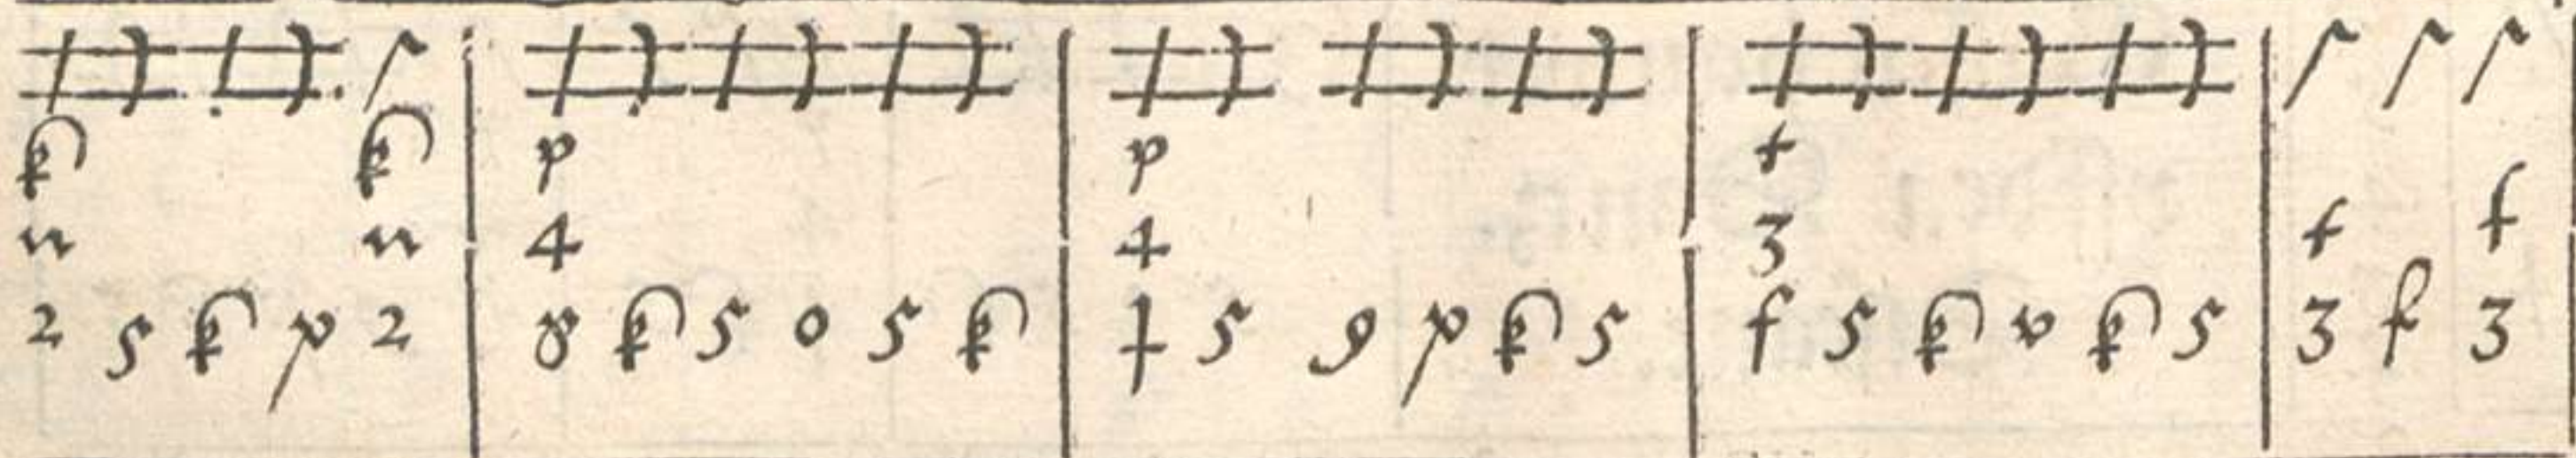 k k p p
n n 4 4 3 f f
2 5 k p 2 8 k 5 o 5 k 5 9 p k 5 f 5 k v k 5 3 3